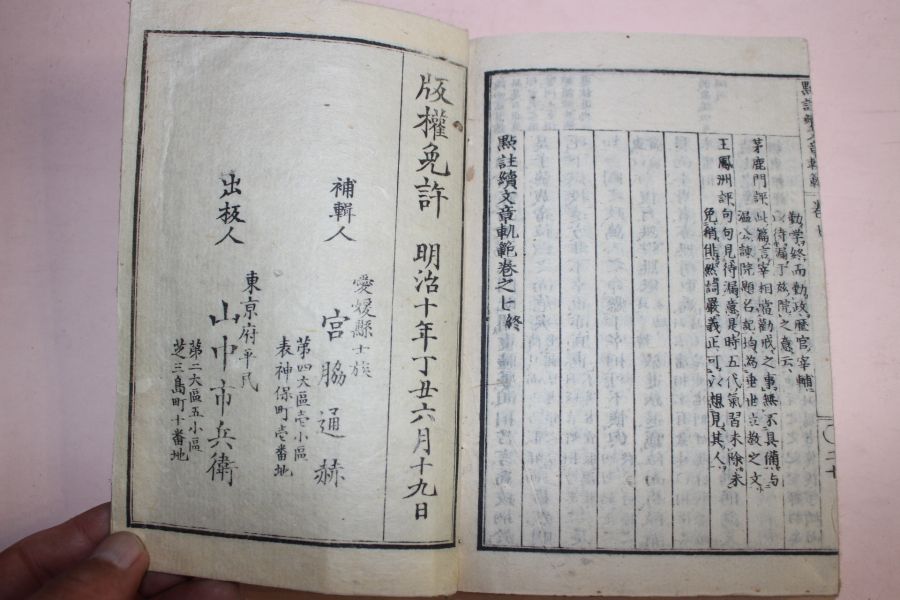 點註續文章軌範 卷七
勤学終而勤政歴官宰輔
待漏于族院之意云
茅鹿門評此篇言宰相當勸戒之事無不具備与
温公諌院題名記均為垂世立教之文
王鳳洲評句句見待漏意是時五代氣習未除未
免稍俳然詞嚴義正可以想見其人
點註續文章軌範卷之七終
版權免許 明治十年丁丑六月十九日
愛媛縣士族
補輯人 宮脇通赫
第四大區壱小區
表神保町壱番地
東亰府平民
出板人 山中市兵衛
第二大區五小區
芝三島町十番地